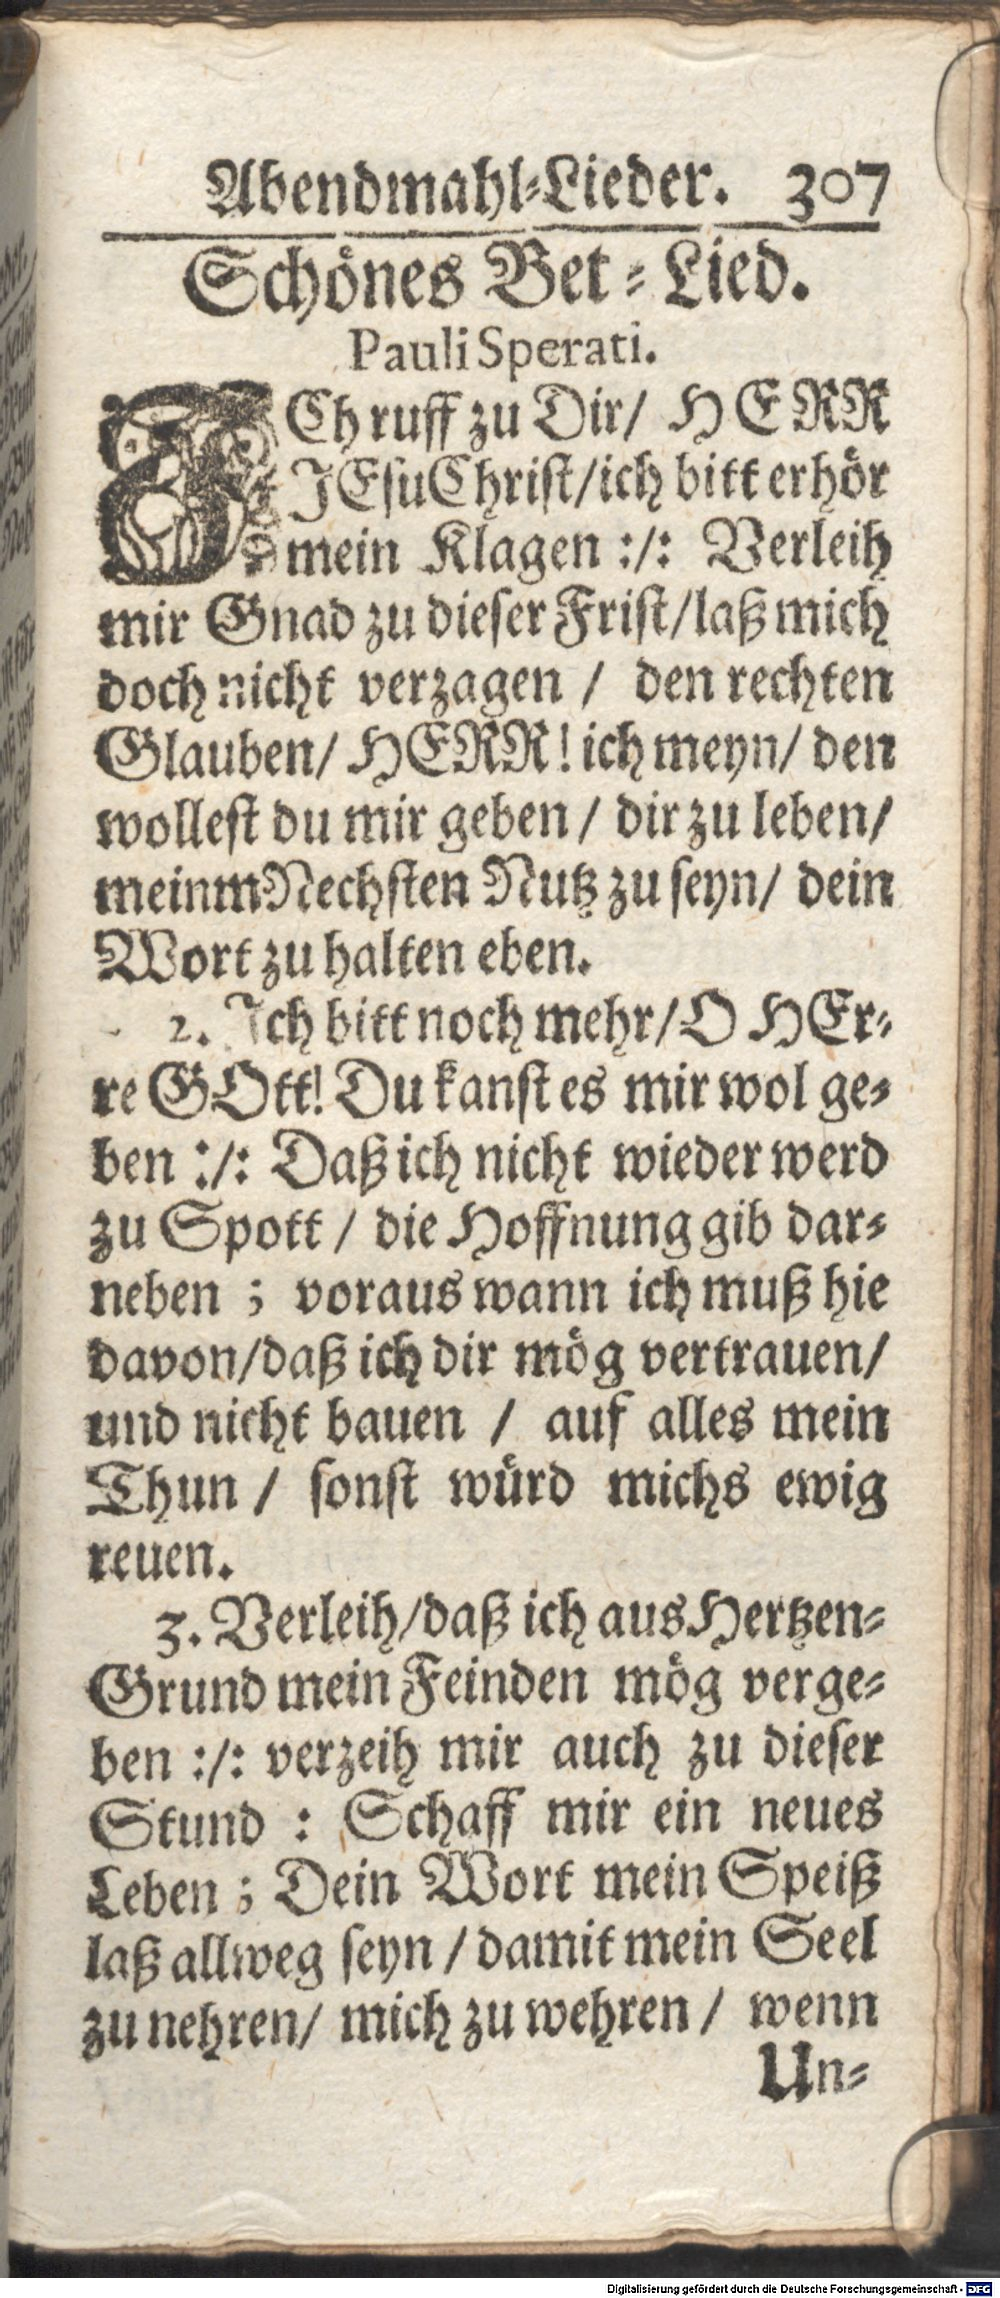 Abendmahl-Lieder. 307
Schönes Bet-Lied.
Pauli Sperati.
ICh ruff zu Dir/ HERR
JEsu Christ/ich bitt erhör
mein Klagen :/: Verleih
mir Gnad zu dieser Frist/laß mich
doch nicht verzagen / den rechten
Glauben/ HERR! ich meyn/ den
wollest du mir geben / dir zu leben/
meinm Nechsten Nutz zu seyn/ dein
Wort zu halten eben.
2. Ich bitt noch mehr/O HEr-
re GOtt! Du kanst es mir wol ge-
ben :/: Daß ich nicht wieder werd
zu Spott / die Hoffnung gib dar-
neben ; voraus wann ich muß hie
davon/daß ich dir mög vertrauen/
und nicht bauen / auf alles mein
Thun / sonst würd michs ewig
reuen.
3. Verleih/daß ich aus Hertzen-
Grund mein Feinden mög verge-
ben :/: verzeih mir auch zu dieser
Stund : Schaff mir ein neues
Leben ; Dein Wort mein Speiß
laß allweg seyn / damit mein Seel
zu nehren/ mich zu wehren / wenn
Un-
Digitalisierung gefördert durch die Deutsche Forschungsgemeinschaft - DFG